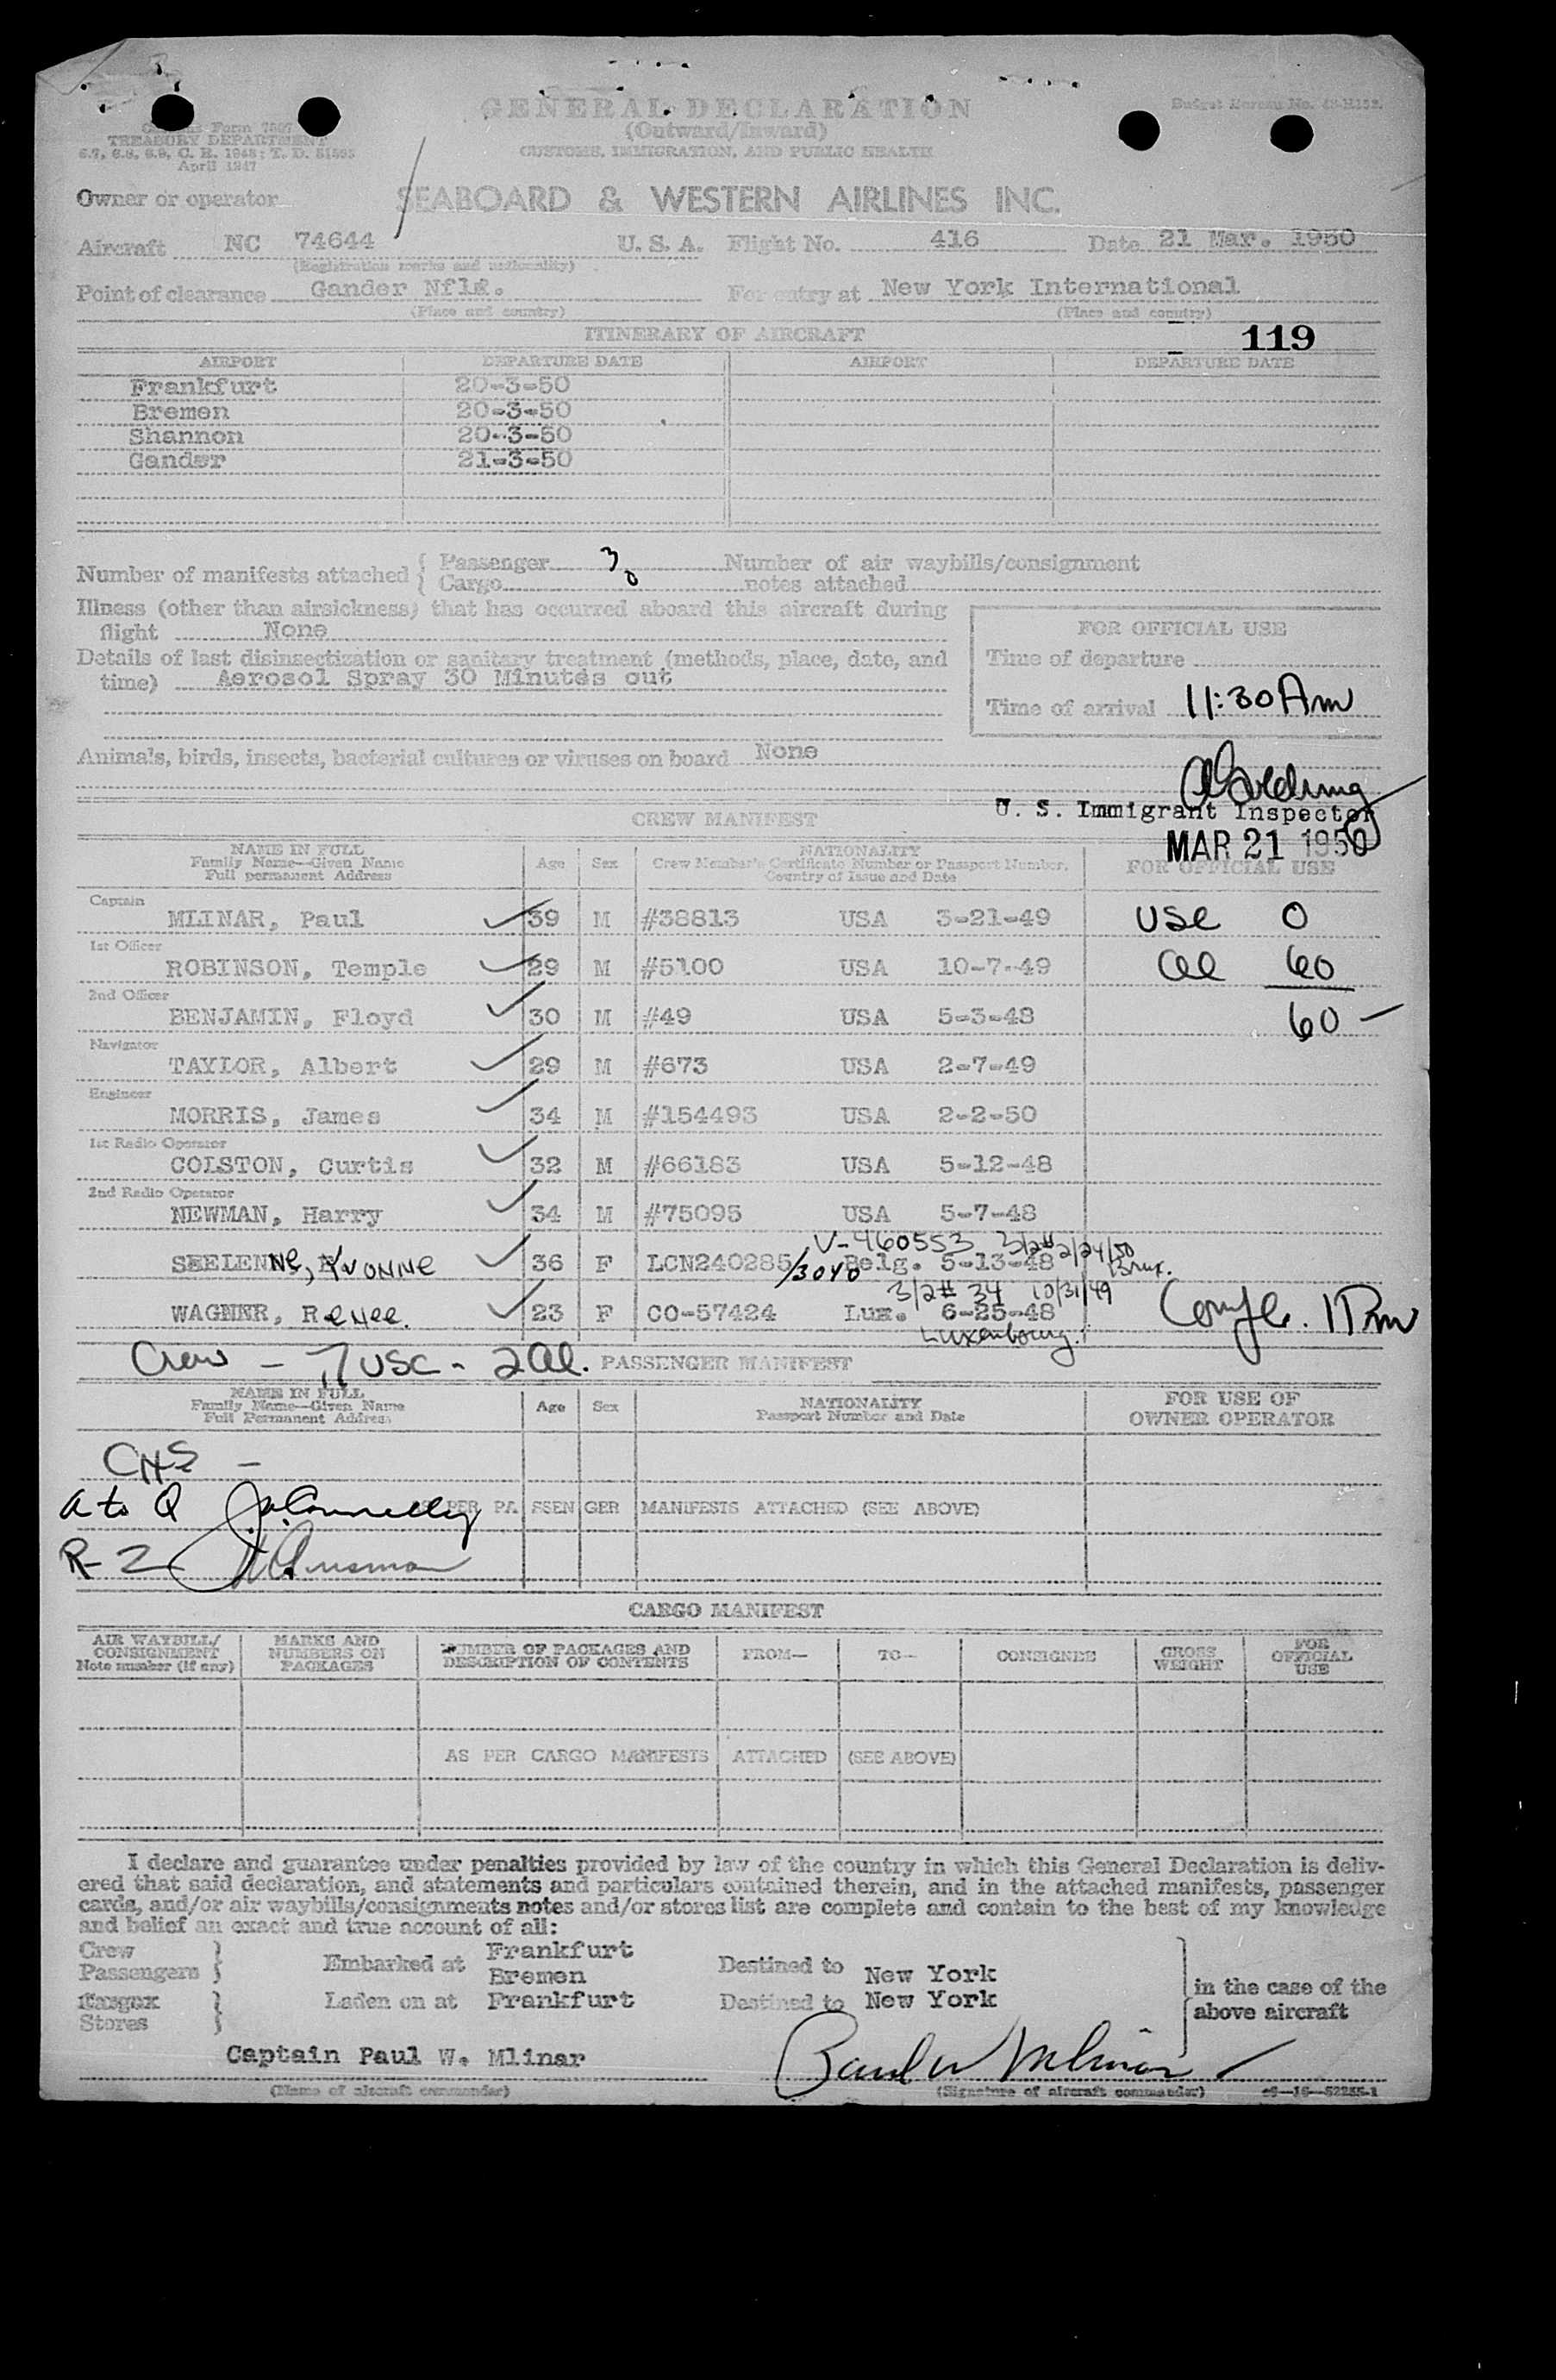 GENERAL DECLARATION
(Outward/Inward)
CUSTOMS, IMMIGRATION, AND PUBLIC HEALTH
Budget Bureau No.
Customs Form 7507
TREASURY DEPARTMENT
6.7, 6.8, 6.9, C. R. 1943; T. D.
April 1947
Owner or operator SEABOARD & WESTERN AIRLINES INC.
Aircraft NC 74644 U. S. A. Flight No. 416 Date 21 Mar. 1950
(Registration marks and nationality)
Point of clearance Gander Nfld. For entry at New York International
(Place and country) (Place and country)
ITINERARY OF AIRCRAFT 119
AIRPORT DEPARTURE DATE AIRPORT DEPARTURE DATE
Frankfurt 20-3-50
Bremen 20-3-50
Shannon 20-3-50
Gander 21-3-50
Number of manifests attached { Passenger 3 Number of air waybills/consignment
Cargo 0 notes attached
Illness (other than airsickness) that has occurred aboard this aircraft during
flight None
FOR OFFICIAL USE
Details of last disinsectization or sanitary treatment (methods, place, date, and
time) Aerosol Spray 30 Minutes out
Time of departure
Time of arrival 11:30 Am
Animals, birds, insects, bacterial cultures or viruses on board None
U. S. Immigrant Inspector
CREW MANIFEST
MAR 21 1950
NAME IN FULL
Family Name—Given Name
Full permanent Address
Age Sex
NATIONALITY
Crew Member's Certificate Number or Passport Number,
Country of Issue and Date
FOR OFFICIAL USE
Captain
MLINAR, Paul 39 M #38813 USA 3-21-49 USC 0
1st Officer
ROBINSON, Temple 29 M #5100 USA 10-7-49 al 60
2nd Officer
BENJAMIN, Floyd 30 M #49 USA 5-3-48 60 —
Navigator
TAYLOR, Albert 29 M #673 USA 2-7-49
Engineer
MORRIS, James 34 M #154493 USA 2-2-50
1st Radio Operator
COLSTON, Curtis 32 M #66183 USA 5-12-48
2nd Radio Operator
NEWMAN, Harry 34 M #75095 USA 5-7-48
V-460553 3/2# 2/24/50
SEELENNe, YVONNe 36 F LCN240285/3040 Belg. 5-13-48 Brux.
3/2# 34 10/31/49
WAGNER, ReNee. 23 F CO-57424 Lux. 6-25-48 Comple. 1 Pm
Luxembourg.
Crew — 7 USC - 2 al. PASSENGER MANIFEST
NAME IN FULL
Family Name—Given Name
Full Permanent Address
Age Sex
NATIONALITY
Passport Number and Date
FOR USE OF
OWNER OPERATOR
A to Q AS PER PASSENGER MANIFESTS ATTACHED (SEE ABOVE)
R-Z
CARGO MANIFEST
AIR WAYBILL/
CONSIGNMENT
Note number (if any)
MARKS AND
NUMBERS ON
PACKAGES
NUMBER OF PACKAGES AND
DESCRIPTION OF CONTENTS
FROM—
TO—
CONSIGNEE
GROSS
WEIGHT
FOR
OFFICIAL
USE
AS PER CARGO MANIFESTS ATTACHED (SEE ABOVE)
I declare and guarantee under penalties provided by law of the country in which this General Declaration is deliv-
ered that said declaration, and statements and particulars contained therein, and in the attached manifests, passenger
cards, and/or air waybills/consignments notes and/or stores list are complete and contain to the best of my knowledge
and belief an exact and true account of all:
Crew
Passengers } Embarked at Frankfurt
Bremen
Destined to New York
Cargo
Stores } Laden on at Frankfurt Destined to New York
in the case of the
above aircraft
Captain Paul W. Mlinar Paul W Mlinar
(Name of aircraft commander) (Signature of aircraft commander)